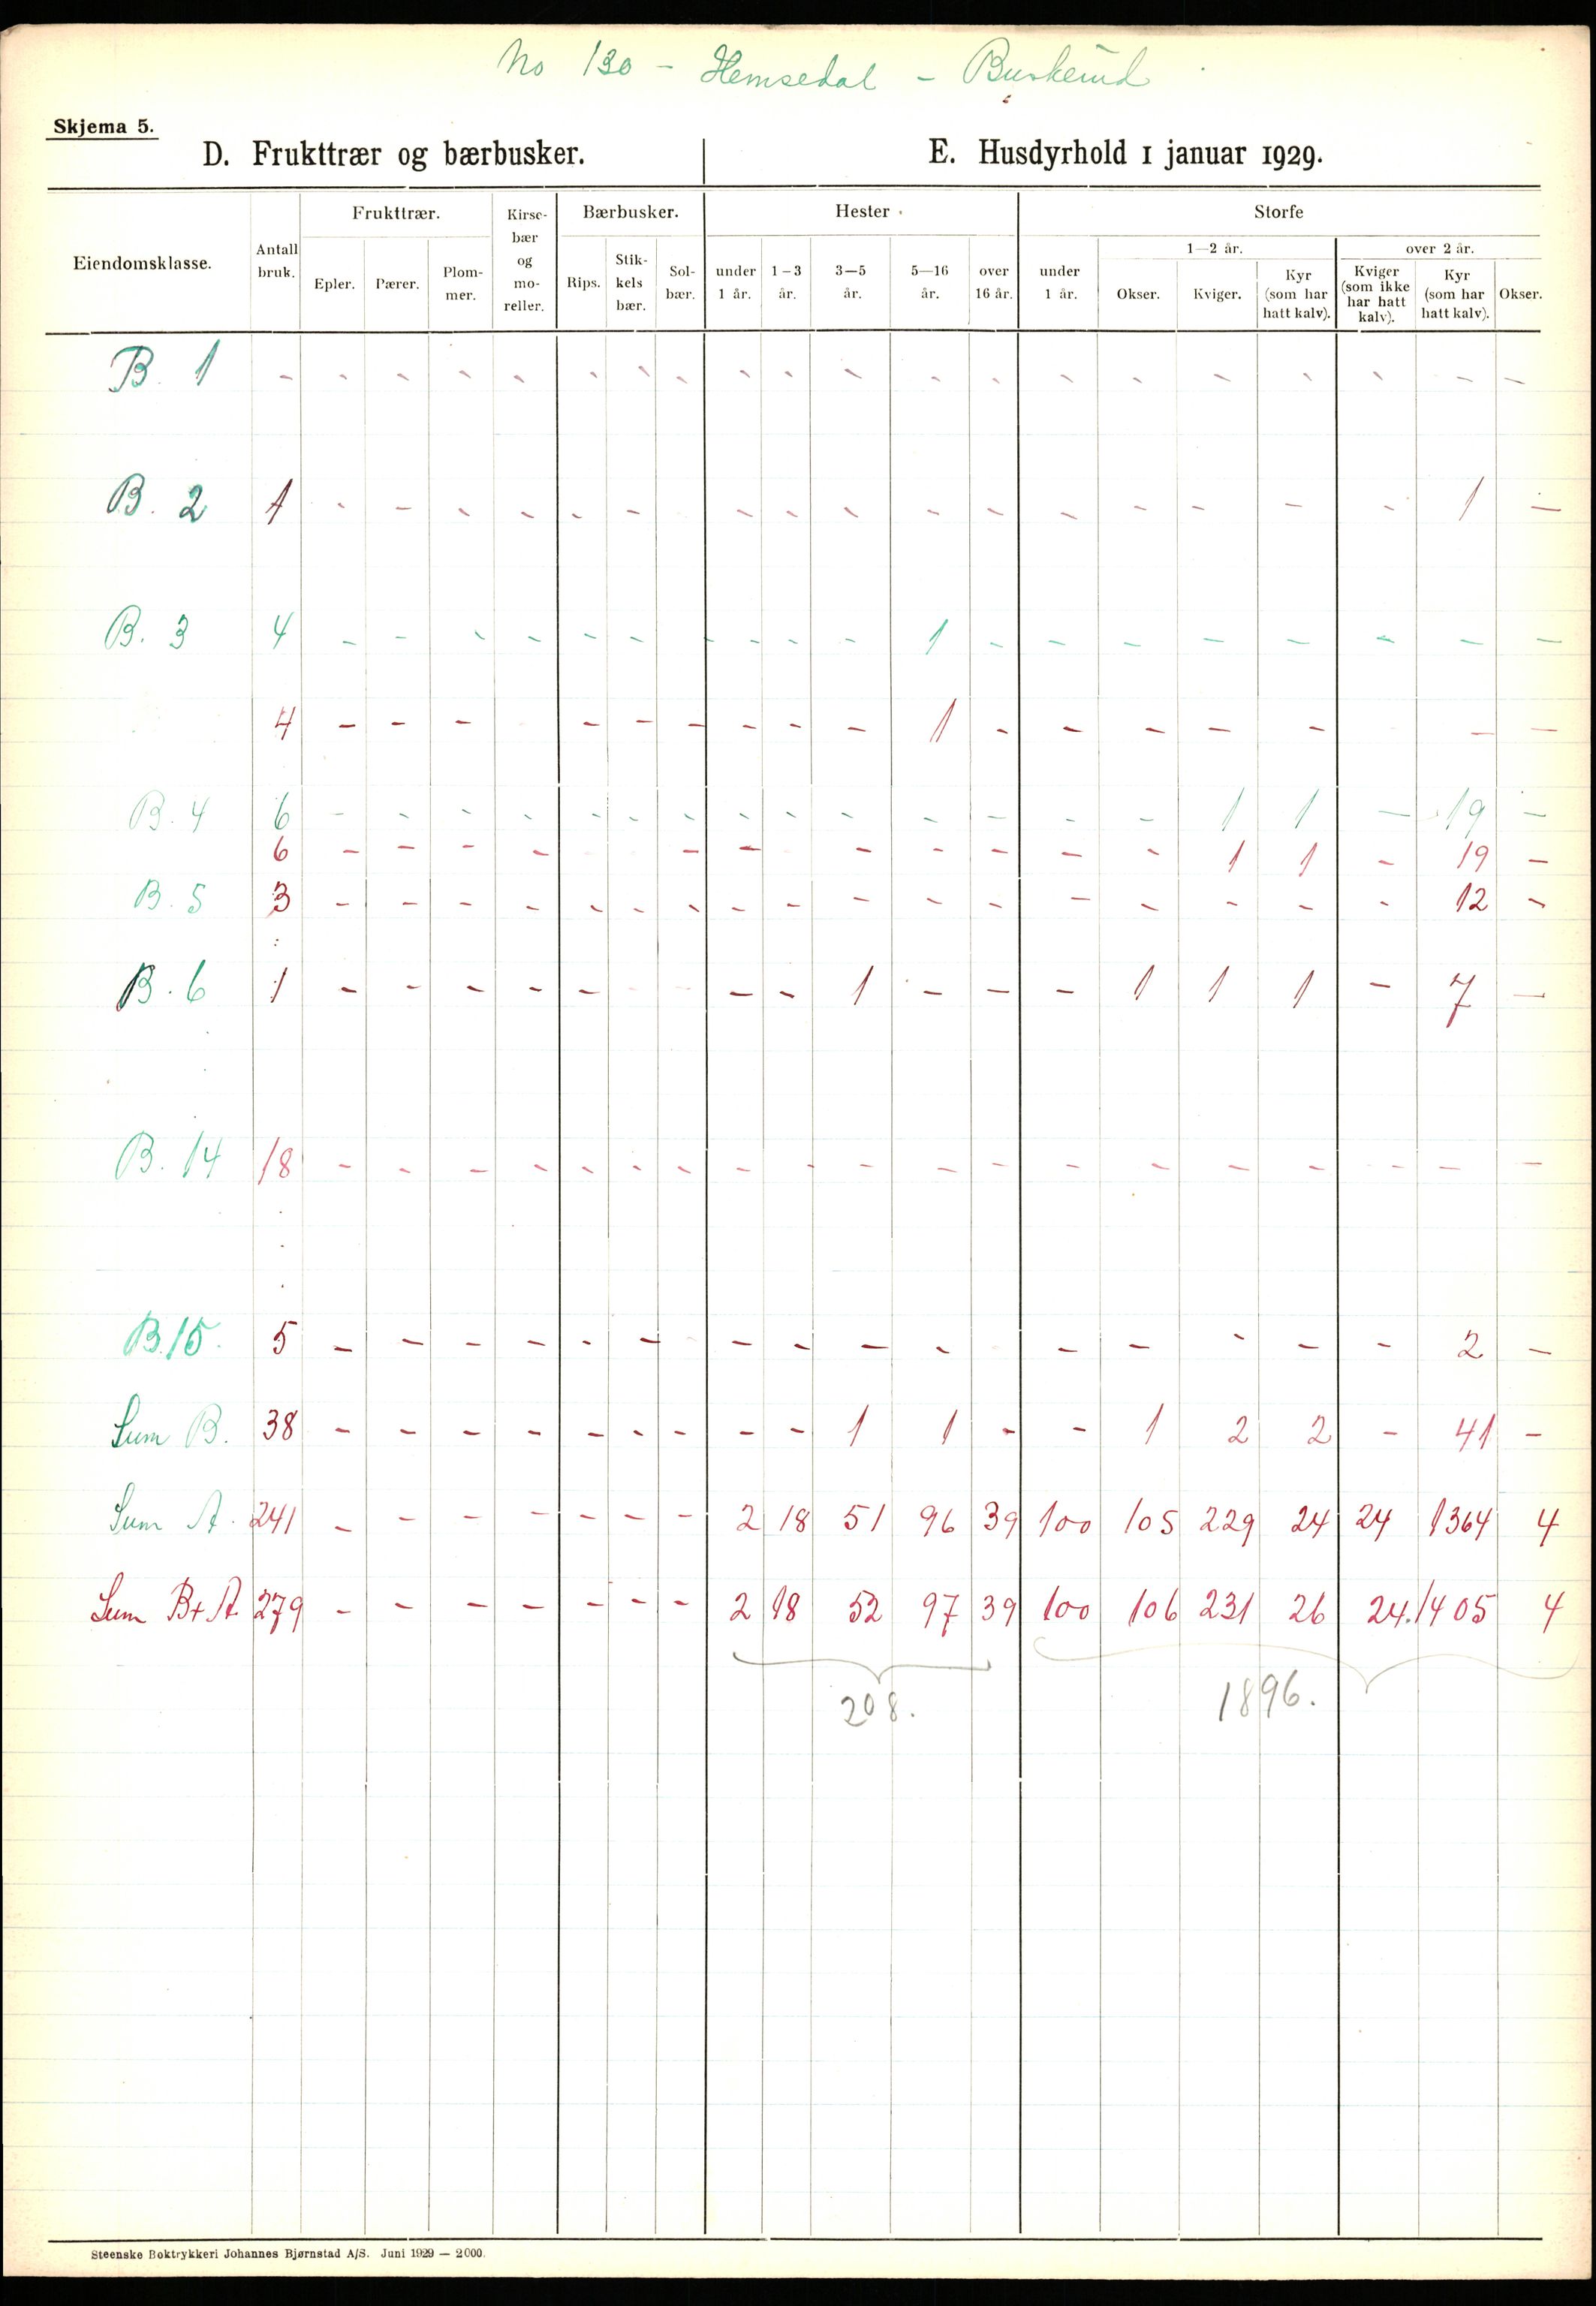 No 130 - Hemsedal - Buskerud
Skjema 5.
D. Frukttrær og bærbusker.
E. Husdyrhold 1 januar 1929.
Eiendomsklasse. Antall bruk. Frukttrær. Kirsebær og moreller. Bærbusker. Hester Storfe
1—2 år. over 2 år.
Epler. Pærer. Plommer. Rips. Stikkelsbær. Solbær. under 1 år. 1-3 år. 3—5 år. 5—16 år. over 16 år. under 1 år. Okser. Kviger. Kyr (som har hatt kalv). Kviger (som ikke har hatt kalv). Kyr (som har hatt kalv). Okser.
B. 1 - - - - - - - - - - - - - - - - - - - -
B. 2 1 - - - - - - - - - - - - - - - - 1 -
B. 3 4 - - - - - - - - - 1 - - - - - - - -
4 - - - - - - - - - 1 - - - - - - -
B. 4 6 - - - - - - - - - - - - - - 1 1 - 19 -
6 - - - - - - - - - - - 1 1 - 19 -
B. 5 3 - - - - - - - - - - - - - - - - - 12 -
B. 6 1 - - - - - - - 1 - - - 1 1 1 - 7 -
B. 14 18 - - - - - - - - - - - - - - - - - - -
B. 15. 5 - - - - - - - - - - - - - - - 2 -
Sum B. 38 - - - - - - - - - 1 1 - - 1 2 2 - 41 -
Sum A. 241 - - - - - - - 2 18 51 96 39 100 105 229 24 24 1364 4
Sum B+A. 279 - - - - - - - 2 18 52 97 39 100 106 231 26 24. 1405 4
208. 1896.
Steenske Boktrykkeri Johannes Bjørnstad A/S. Juni 1929 — 2000.